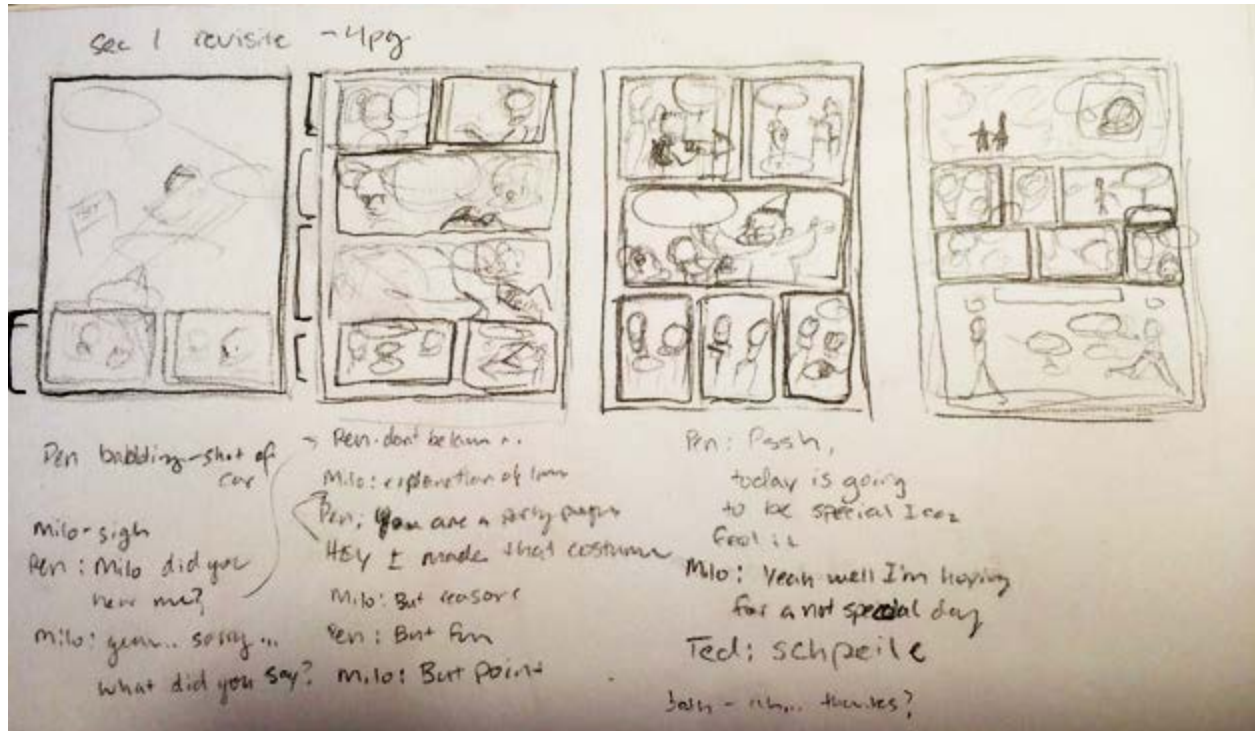 sec 1 revisite - 4pg
Pen babbling - shot of
car
Milo - sigh
Pen: Milo did you
hear me?
Milo: yeah.. sorry...
what did you say?
Pen: don't be
Milo: explanation of
Pen: You are a party
HEY I made that costume
Milo: But reasons
Pen: But Fun
Milo: But Point
Pen: Pssh,
today is going
to be special I can
feel it
Milo: Yeah well I'm hoping
for a not special day
Ted: schpeile
both - uh... thanks?